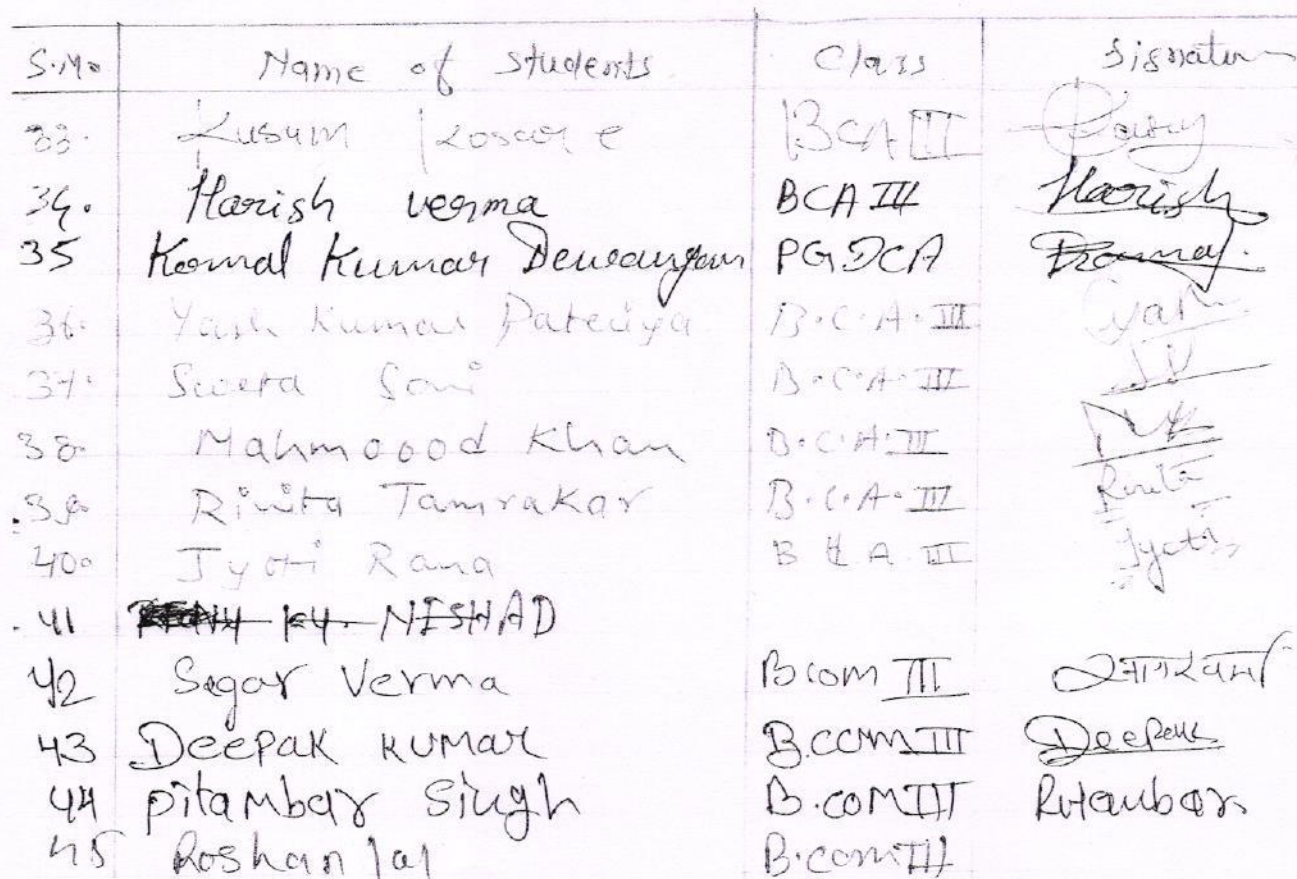 S.No Name of students Class Signature
33. Kusum Kosare BCA III
34. Harish verma BCA III Harish
35 Komal Kumar Dewangan PGDCA
36. Yash Kumar Pateriya B.C.A. III Yash
37. Sweta Soni B.C.A. III
38. Mahmoood Khan B.C.A. III
39 Rinita Tamrakar B.C.A. III Rinita
40. Jyoti Rana B C A. III Jyoti
41 NISHAD
42 Sagar Verma Bcom III सागर वर्मा
43 Deepak KUMAR B.COM III Deepak
44 pitambar Singh B.COM III Pitambar
45 Roshan lal B.com III